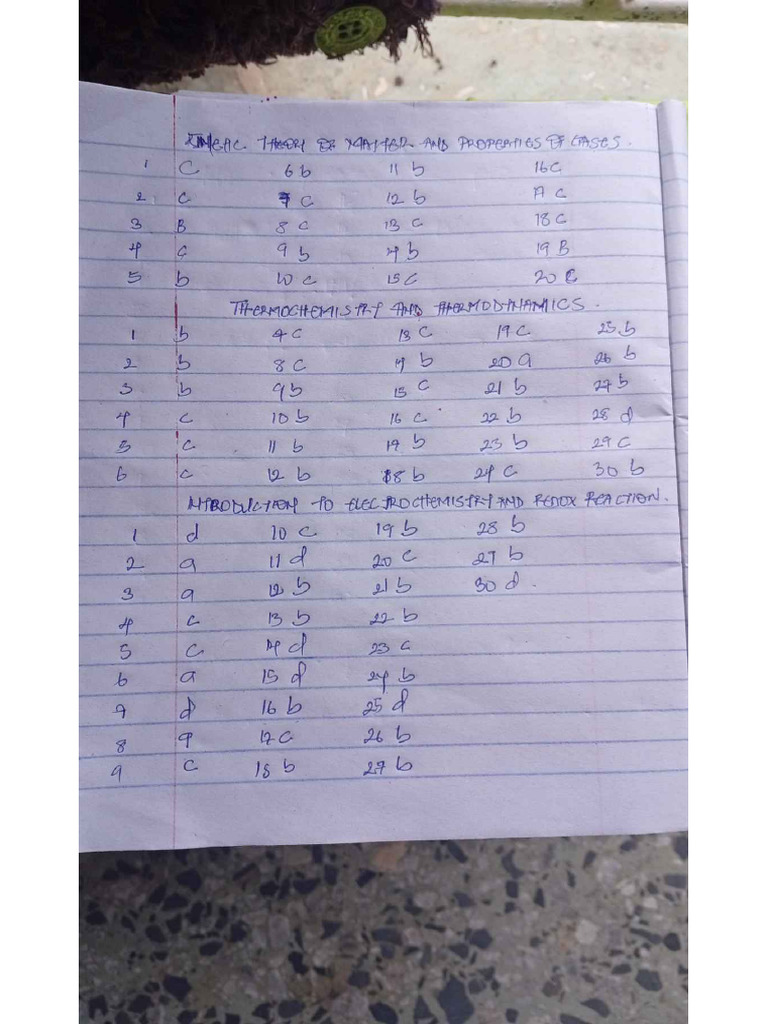 KINETIC THEORY OF MATTER AND PROPERTIES OF GASES.
1 C 6 b 11 b 16 C
2 C 7 C 12 b 17 C
3 B 8 C 13 C 18 C
4 C 9 b 14 b 19 B
5 b 10 C 15 C 20 C
THERMOCHEMISTRY AND THERMODYNAMICS.
1 b 7 C 13 C 19 C 25 b
2 b 8 C 14 b 20 a 26 b
3 b 9 b 15 C 21 b 27 b
4 C 10 b 16 C 22 b 28 d
5 C 11 b 17 b 23 b 29 C
6 C 12 b 18 b 24 C 30 b
INTRODUCTION TO ELECTROCHEMISTRY AND REDOX REACTION.
1 d 10 C 19 b 28 b
2 a 11 d 20 C 27 b
3 a 12 b 21 b 30 d.
4 C 13 b 22 b
5 C 14 d 23 C
6 a 15 d 24 b
7 d 16 b 25 d
8 a 17 C 26 b
9 C 18 b 27 b